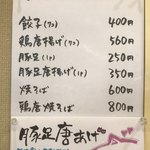 餃子(7コ) 400円
鶏唐揚げ(7コ) 560円
豚足(1ヶ) 250円
豚足唐揚げ(1ヶ) 350円
焼そば 600円
鶏唐焼そば 800円
豚足唐あげ